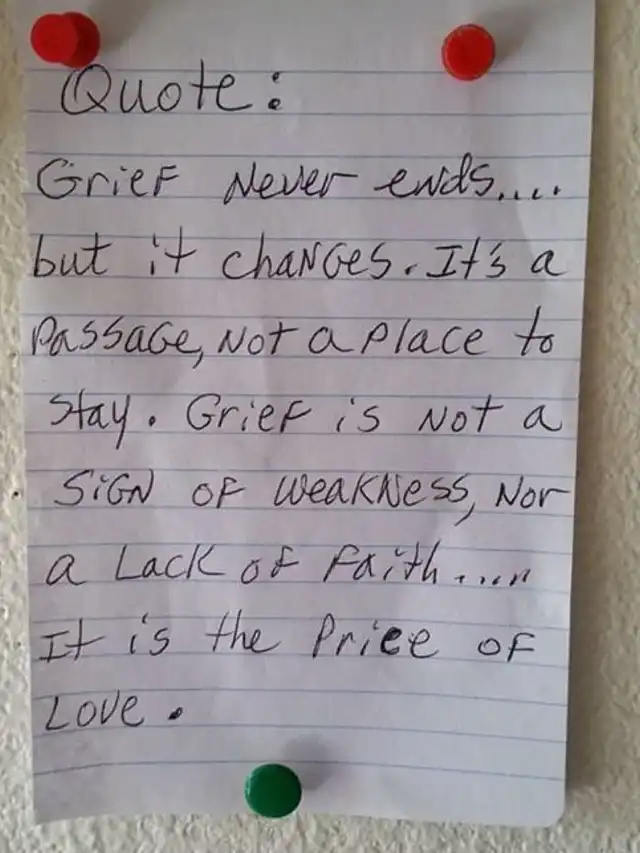 Quote:
Grief Never ends....
but it changes. It's a
Passage, Not a Place to
Stay. Grief is Not a
Sign of Weakness, Nor
a Lack of Faith....
It is the Price of
Love.